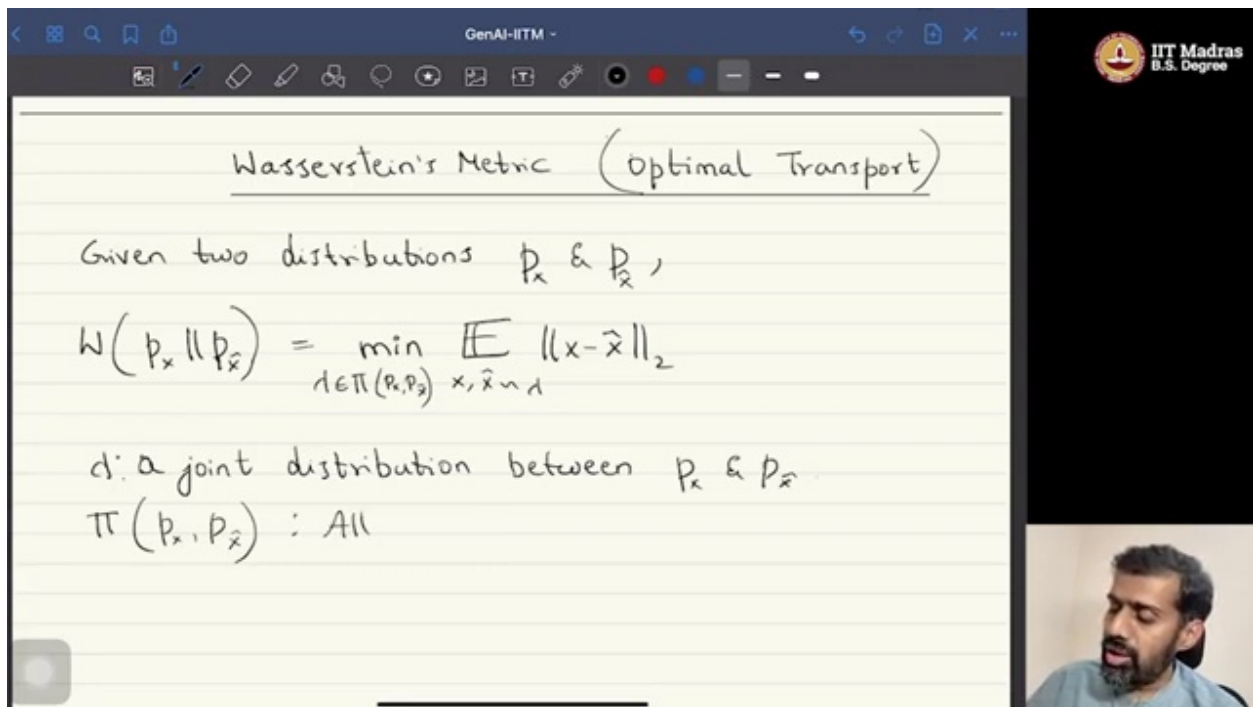 GenAI-IITM
IIT Madras
B.S. Degree
Wasserstein's Metric (Optimal Transport)
Given two distributions p_x & p_x̂ ,
W(p_x || p_x̂) = min E ||x-x̂||₂
λ∈Π(p_x,p_x̂) x, x̂ ~ λ
λ: a joint distribution between p_x & p_x̂
Π(p_x, p_x̂) : All